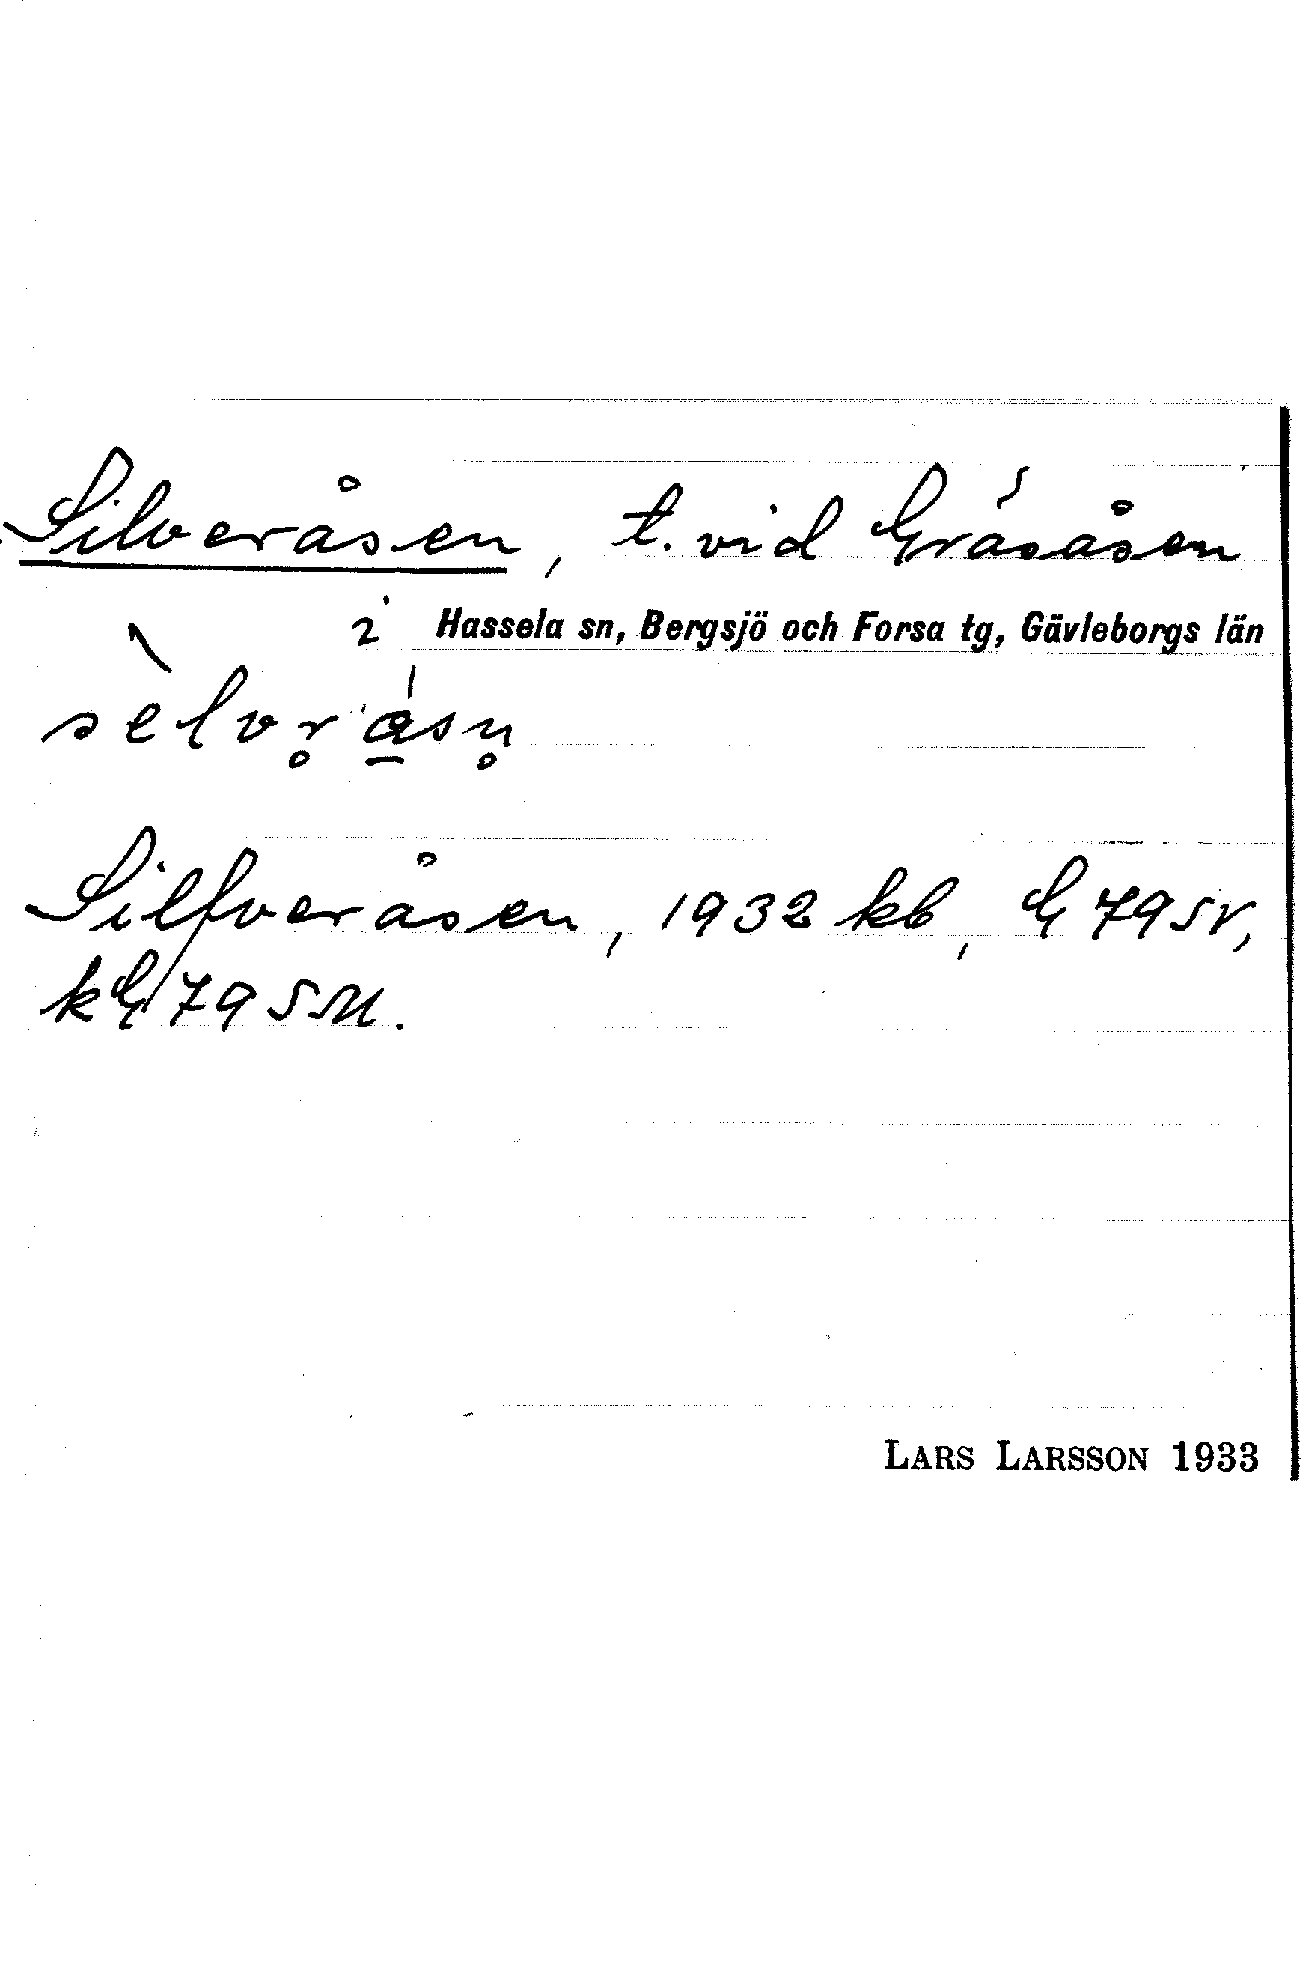 Silveråsen, t. vid Gråsåsen
i Hassela sn, Bergsjö och Forsa tg, Gävleborgs län
sèlvr̥a̲sn̥
Silfveråsen, 1932 kb, G 79 SV,
kG 79 SM.
LARS LARSSON 1933